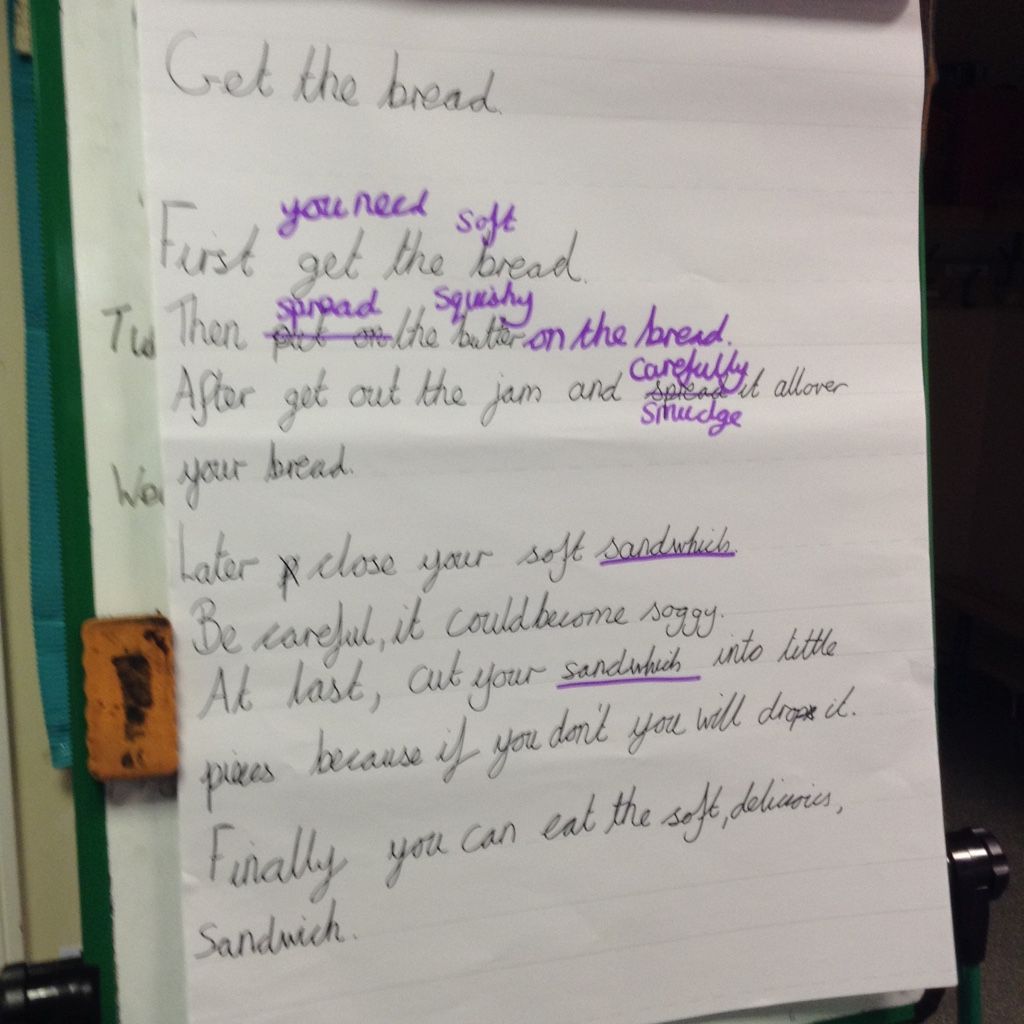 Get the bread.
you need soft
First get the bread.
spread squishy
Then put on the butter on the bread.
carefully
After get out the jam and spread it allover
smudge
your bread.
Later close your soft sandwhich
Be careful, it could become soggy.
At last, cut your sandwhich into little
pieces because if you don't you will drop it.
Finally you can eat the soft, delicious,
Sandwich.
Tw
We